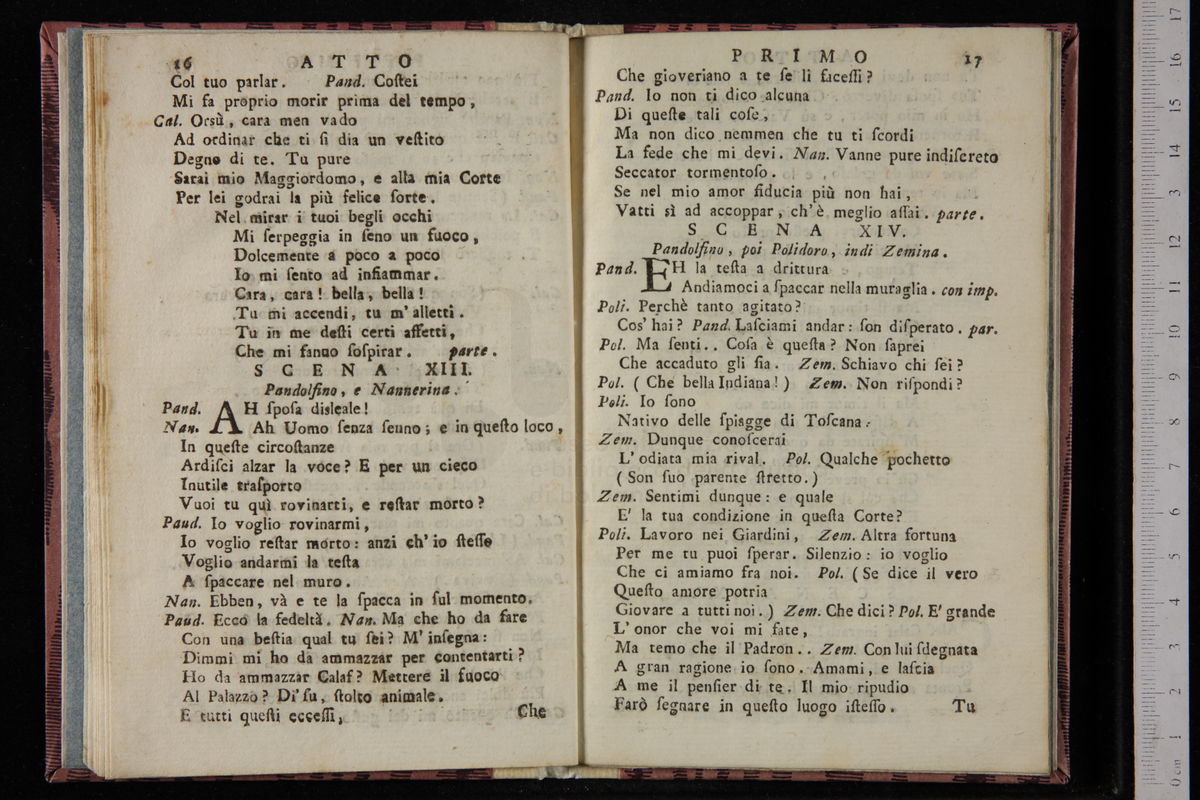 16 ATTO
Col tuo parlar. Pand. Coſtei
Mi fa proprio morir prima del tempo,
Cal. Orsù, cara men vado
Ad ordinar che ti ſi dia un veſtito
Degno di te. Tu pure
Sarai mio Maggiordomo, e alla mia Corte
Per lei godrai la più felice ſorte.
Nel mirar i tuoi begli occhi
Mi ſerpeggia in ſeno un fuoco,
Dolcemente a poco a poco
Io mi ſento ad infiammar.
Cara, cara! bella, bella!
Tu mi accendi, tu m'alletti.
Tu in me deſti certi affetti,
Che mi fanno ſoſpirar. parte.
SCENA XIII.
Pandolfino, e Nannerina.
Pand. AH ſpoſa disleale!
Nan. Ah Uomo ſenza ſenno; e in queſto loco,
In queſte circoſtanze
Ardiſci alzar la voce? E per un cieco
Inutile traſporto
Vuoi tu quì rovinarti, e reſtar morto?
Pand. Io voglio rovinarmi,
Io voglio reſtar morto: anzi ch'io ſteſſo
Voglio andarmi la teſta
A ſpaccare nel muro.
Nan. Ebben, và e te la ſpacca in ſul momento.
Pand. Ecco la fedeltà. Nan. Ma che ho da fare
Con una beſtia qual tu ſei? M'inſegna:
Dimmi mi ho da ammazzar per contentarti?
Ho da ammazzar Calaf? Mettere il fuoco
Al Palazzo? Di' ſu, ſtolto animale.
E tutti queſti ecceſſi, Che
PRIMO 17
Che gioveriano a te ſe li faceſſi?
Pand. Io non ti dico alcuna
Di queſte tali coſe,
Ma non dico nemmen che tu ti ſcordi
La fede che mi devi. Nan. Vanne pure indiſcreto
Seccator tormentoſo.
Se nel mio amor fiducia più non hai,
Vatti sì ad accoppar, ch'è meglio aſſai. parte.
SCENA XIV.
Pandolfino, poi Polidoro, indi Zemina.
Pand. EH la teſta a drittura
Andiamoci a ſpaccar nella muraglia. con imp.
Poli. Perchè tanto agitato?
Cos' hai? Pand. Laſciami andar: ſon diſperato. par.
Pol. Ma ſenti.. Coſa è queſta? Non ſaprei
Che accaduto gli ſia. Zem. Schiavo chi ſei?
Pol. (Che bella Indiana!) Zem. Non riſpondi?
Poli. Io ſono
Nativo delle ſpiagge di Toſcana.
Zem. Dunque conoſcerai
L'odiata mia rival. Pol. Qualche pochetto
(Son ſuo parente ſtretto.)
Zem. Sentimi dunque: e quale
E' la tua condizione in queſta Corte?
Poli. Lavoro nei Giardini, Zem. Altra fortuna
Per me tu puoi ſperar. Silenzio: io voglio
Che ci amiamo fra noi. Pol. (Se dice il vero
Queſto amore potria
Giovare a tutti noi.) Zem. Che dici? Pol. E' grande
L'onor che voi mi fate,
Ma temo che il Padron.. Zem. Con lui ſdegnata
A gran ragione io ſono. Amami, e laſcia
A me il penſier di te. Il mio ripudio
Farò ſegnare in queſto luogo iſteſſo. Tu
0 cm 1 2 3 4 5 6 7 8 9 10 11 12 13 14 15 16 17